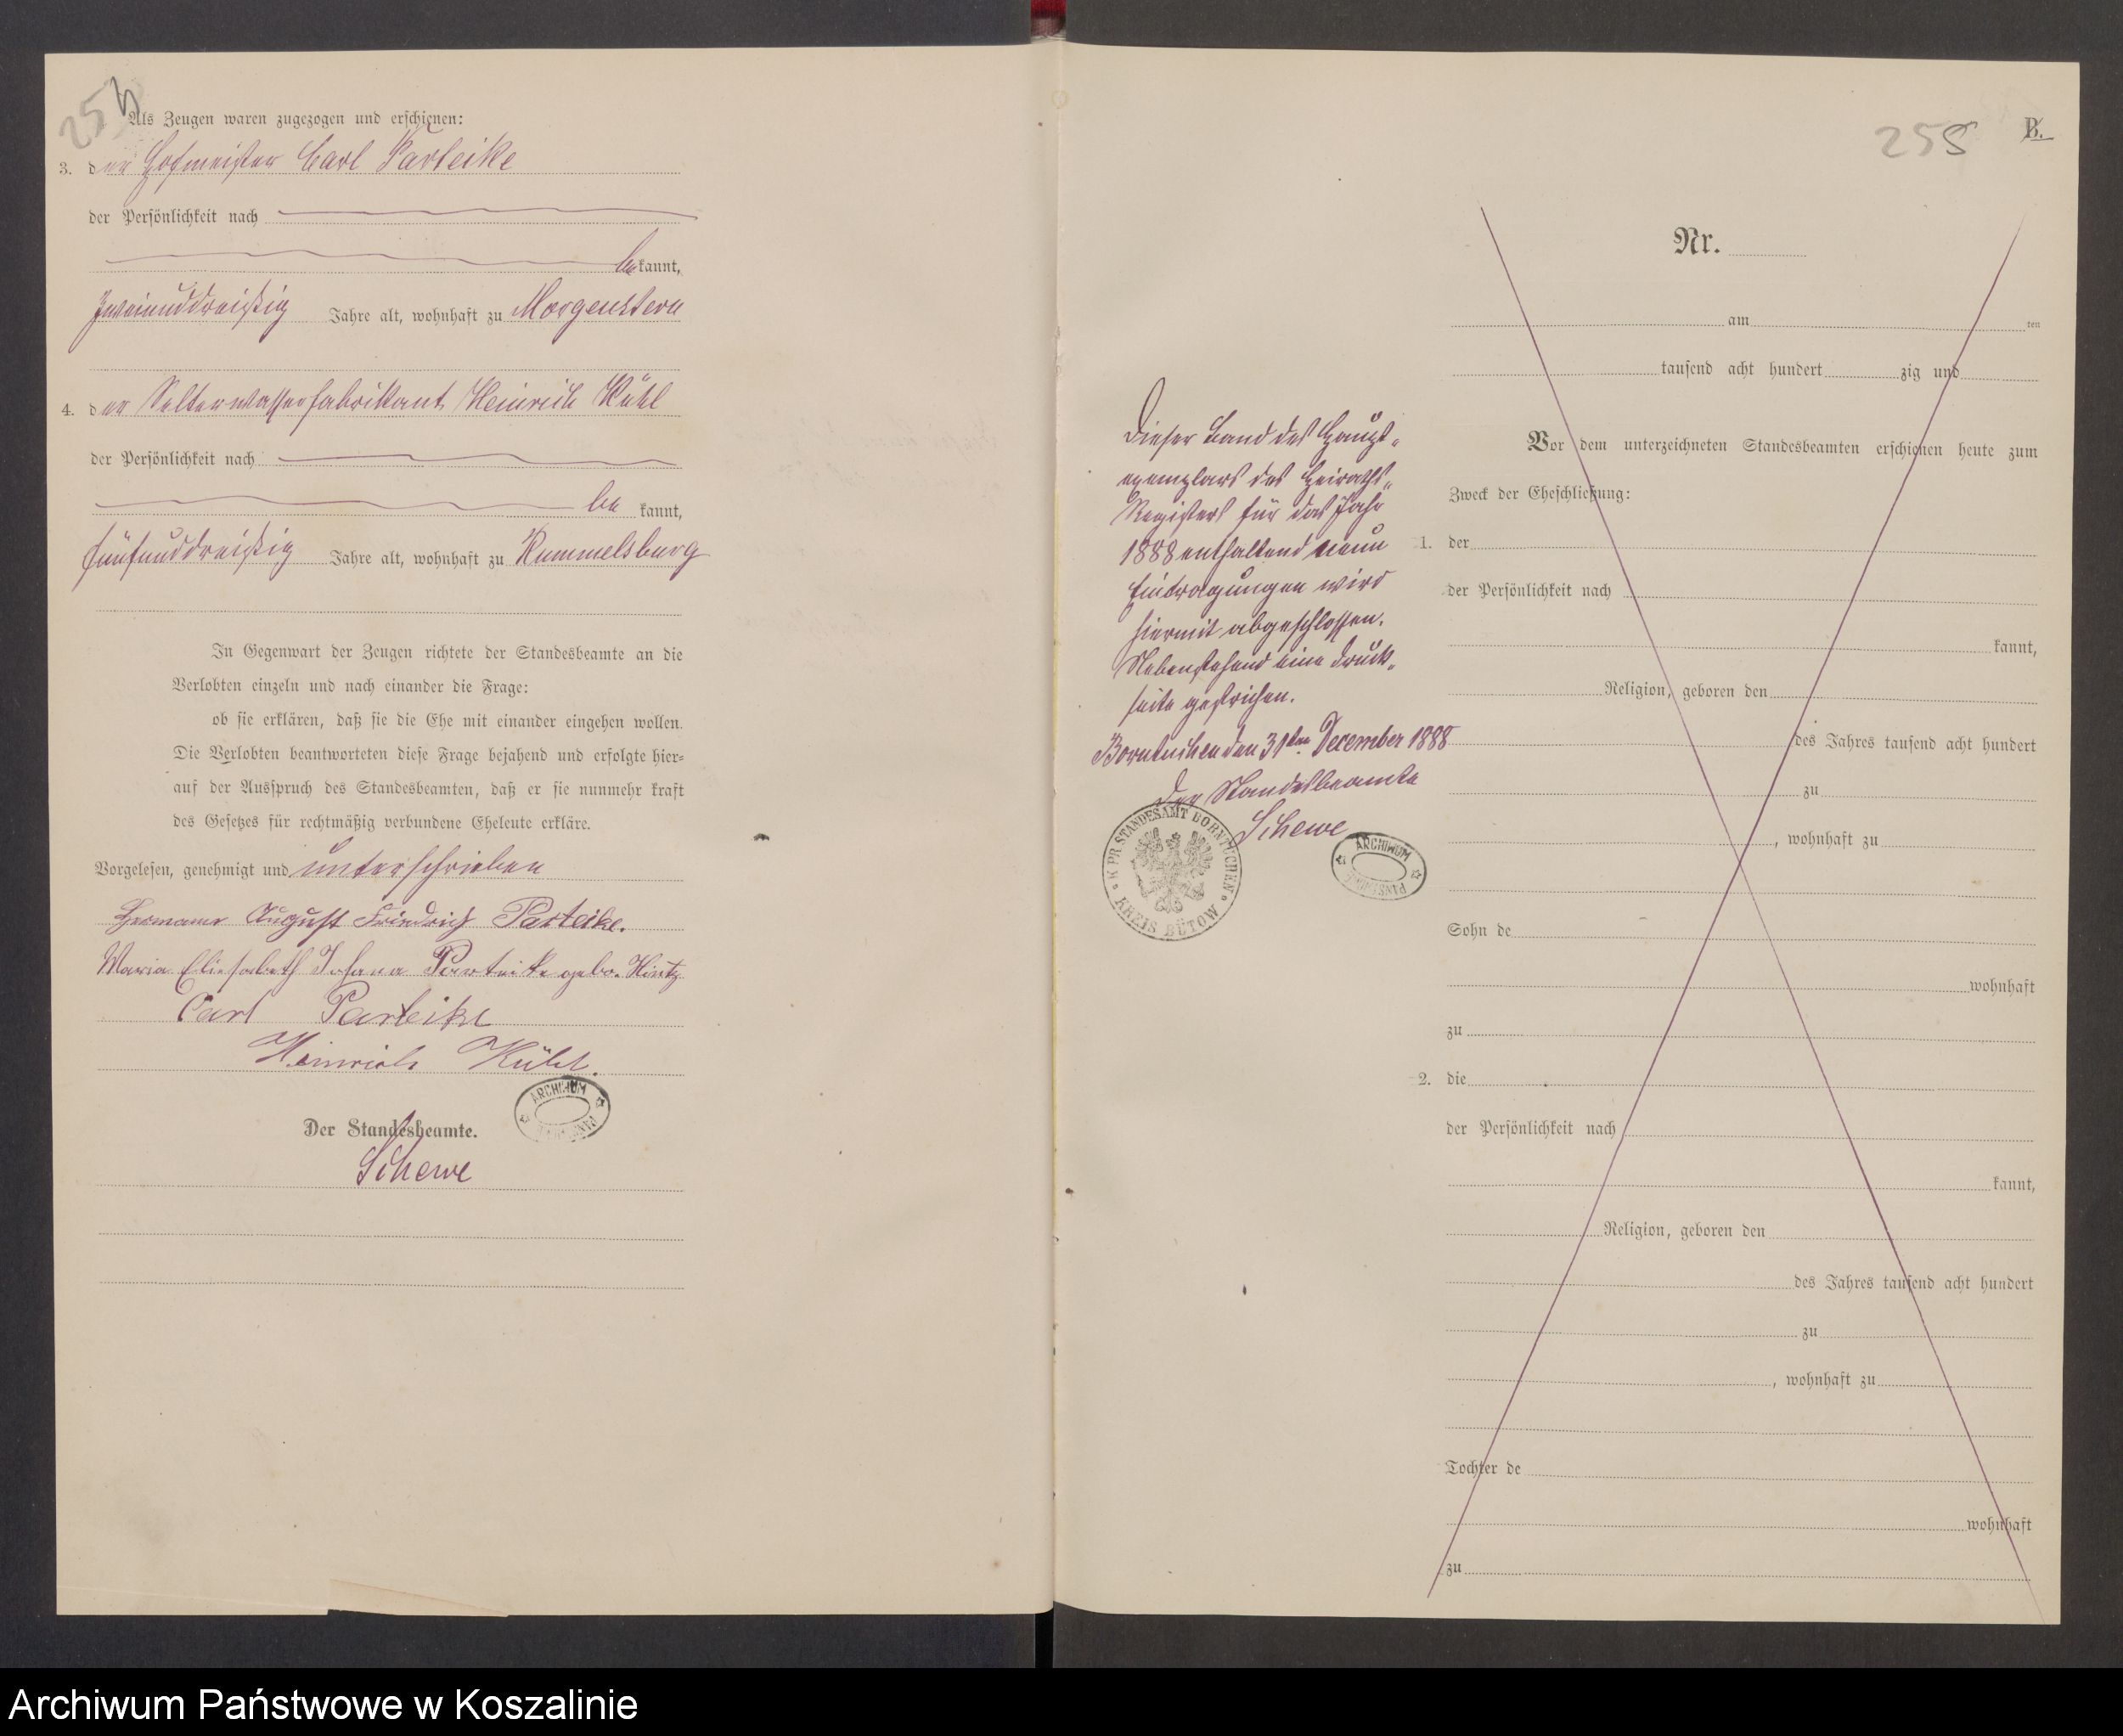 254
Als Zeugen waren zugezogen und erschienen:
3. der Hofmeister Carl Parteike
der Persönlichkeit nach
bekannt,
zweiunddreißig Jahre alt, wohnhaft zu Morgenstern
4. der Selterwasserfabrikant Heinrich Kühl
der Persönlichkeit nach
be kannt,
fünfunddreißig Jahre alt, wohnhaft zu Rummelsburg
In Gegenwart der Zeugen richtete der Standesbeamte an die
Verlobten einzeln und nach einander die Frage:
ob sie erklären, daß sie die Ehe mit einander eingehen wollen.
Die Verlobten beantworteten diese Frage bejahend und erfolgte hier-
auf der Ausspruch des Standesbeamten, daß er sie nunmehr kraft
des Gesetzes für rechtmäßig verbundene Eheleute erkläre.
Vorgelesen, genehmigt und unterschrieben
Hermann August Friedrich Parteike.
Maria Eliesabeth Johana Parteike gebo. Hintz
Carl Parteike
Heinrich Kühl.
ARCHIWUM
Der Standesbeamte.
Schewe
255
B.
Dieser Band des Haupt-
exemplars des Heiraths-
Registers für das Jahr
1888 enthaltend neun
Eintragungen wird
hiermit abgeschlossen.
Nebenstehend eine Druck-
seite gestrichen.
Borntuchen den 31ten December 1888
Der Standesbeamte
Schewe
K. PR. STANDESAMT BORNTUCHEN
KREIS BÜTOW
ARCHIWUM
Nr.
am ten
tausend acht hundert zig und
Vor dem unterzeichneten Standesbeamten erschienen heute zum
Zweck der Eheschließung:
1. der
der Persönlichkeit nach
kannt,
Religion, geboren den
des Jahres tausend acht hundert
zu
, wohnhaft zu
Sohn de
wohnhaft
zu
2. die
der Persönlichkeit nach
kannt,
Religion, geboren den
des Jahres tausend acht hundert
zu
, wohnhaft zu
Tochter de
wohnhaft
zu
Archiwum Państwowe w Koszalinie